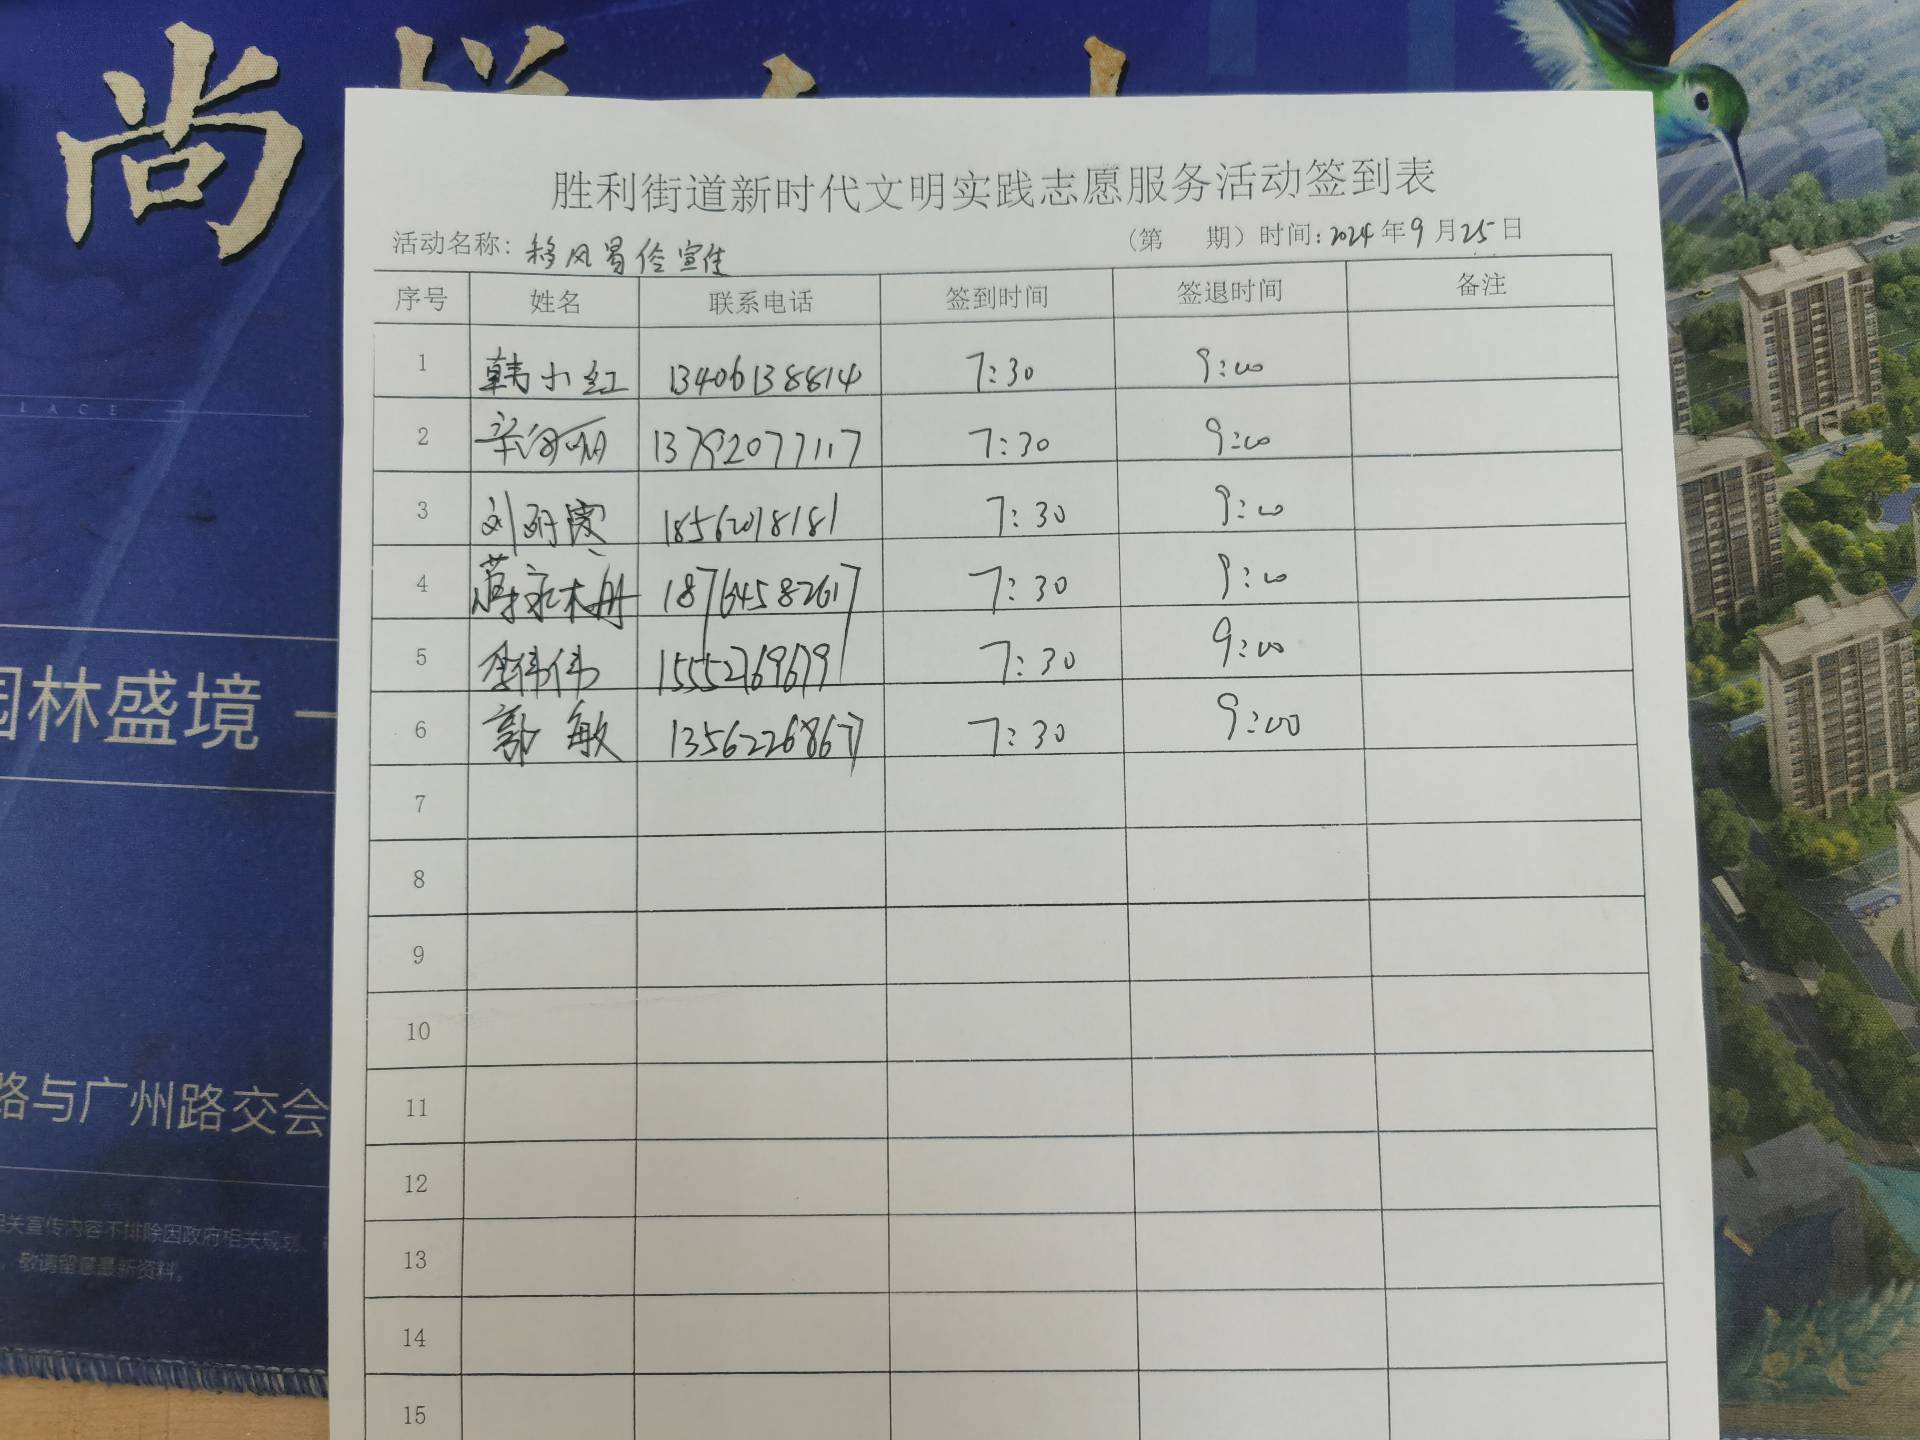 尚
胜利街道新时代文明实践志愿服务活动签到表
活动名称：移风易俗宣传 （第 期）时间：2024年9月25日
序号 姓名 联系电话 签到时间 签退时间 备注
1 韩小红 13406138814 7:30 9:00
2 13792077117 7:30 9:00
3 刘 18562018181 7:30 9:00
4 18764582617 7:30 9:00
5 李伟伟 15552769679 7:30 9:00
6 郭敏 13562268677 7:30 9:00
7
8
9
10
11
12
13
14
15
LACE
园林盛境
路与广州路交会
相关宣传内容不排除因政府相关规划、
敬请留意最新资料。